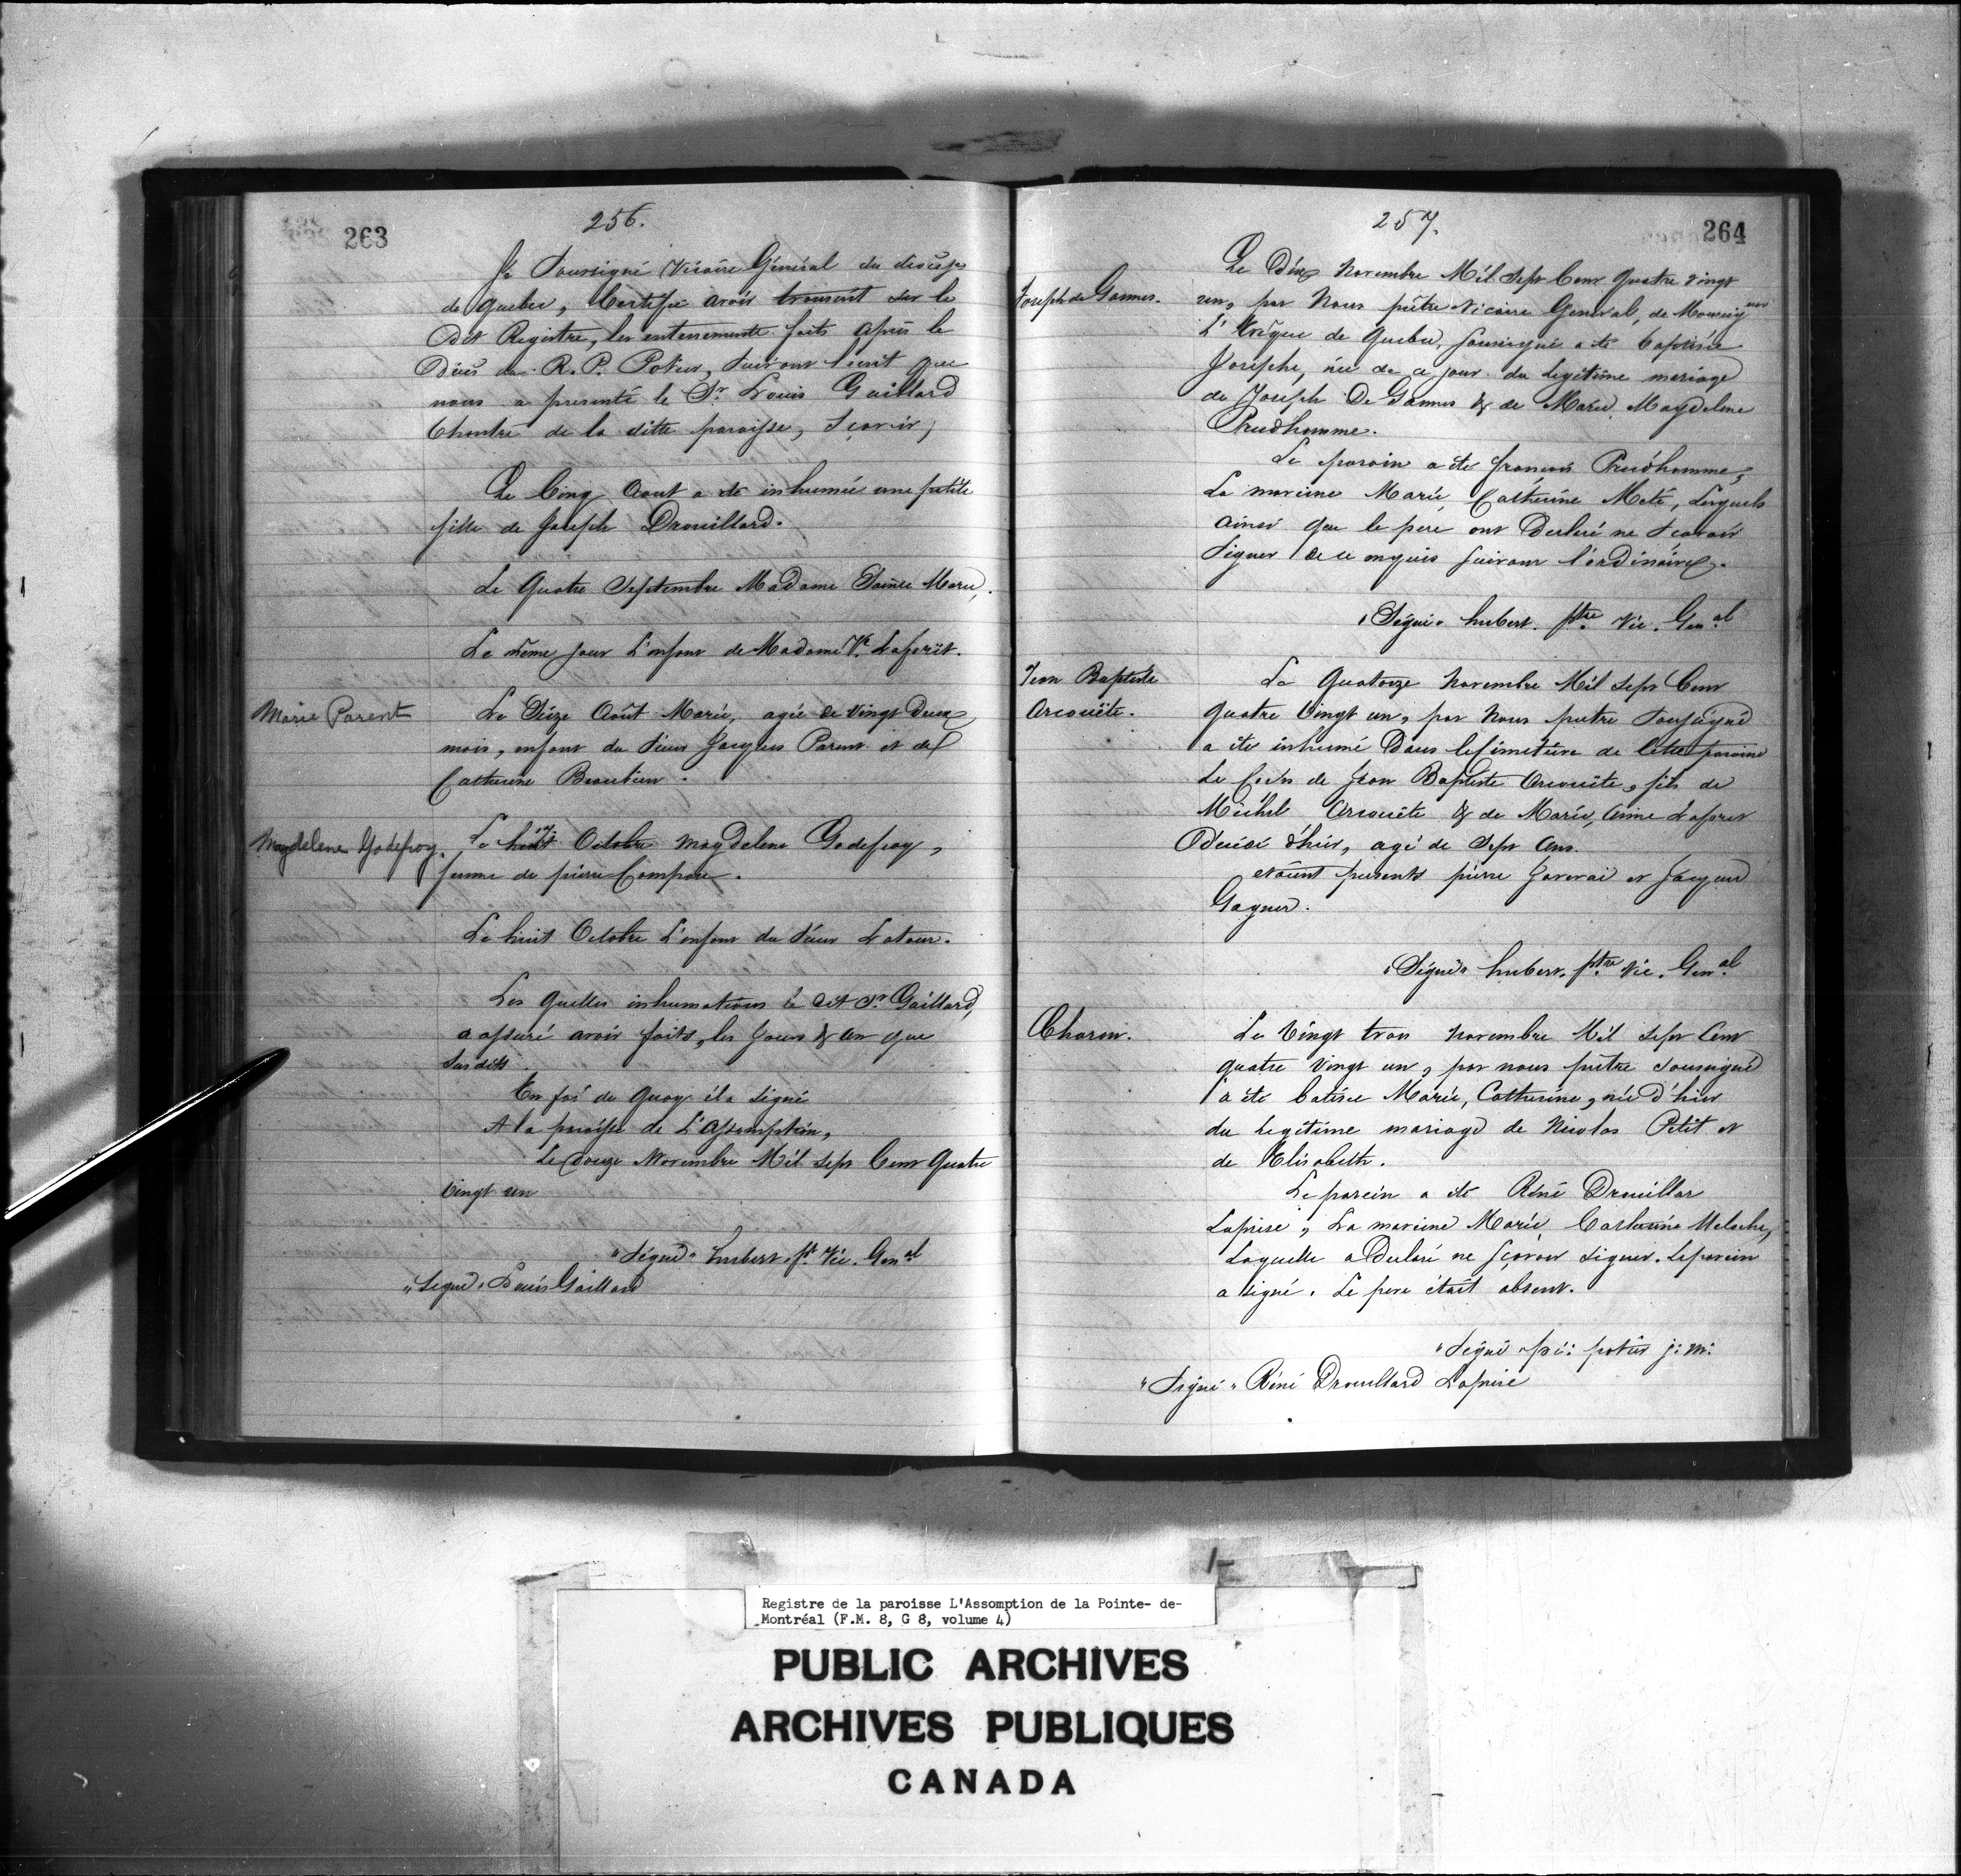 263
256.
Je Soussigné Vicaire Général du diocèse
de Quebec, Certifie avoir transcrit sur le
Dit Registre, les enterrements faits après le
Décès du R. P. Potier, suivant l'ecrit que
nous a presenté le Sr. Louis Gaillard
Chantre de la ditte paroisse, Sçavoir,
Le Cinq Aout a été inhumée une petite
fille de Joseph Drouillard.
Le Quatre Septembre Madame Sainte Marie,
Le même jour L'enfant de Madame Ve. Laforêt.
Marie Parent
Le Seize Août Marie, agée de vingt Deux
mois, enfant du Sieur Jacques Parent et de
Catherine Beaubien.
Magdelene Godefroy.
Le huit Octobre Magdelene Godefroy,
femme de pierre Campau.
Le huit Octobre L'enfant du Sieur Latour.
Les Quelles inhumations le dit Sr. Gaillard,
a assuré avoir faits, les Jours & an que
Susdits.
En foi de Quoy il a signé
A la paroisse de L'Assomption,
Le douze Novembre Mil Sept Cent Quatre
vingt un
"Signé" hubert. pt. Vic. Genal
"Signé" Louis Gaillard
257.
264
Joseph de Gannes.
Le Dix Novembre Mil Sept Cent Quatre vingt
un, par Nous prêtre Vicaire General, de Monseigneur
L'Evêque de Quebec, soussigné a été baptisée
Josephe, née de ce jour du legitime mariage
de Joseph De Gannes & de Marie Magdelene
Prudhomme.
Le parain a été françois Prudhomme,
La maraine Marie Catherine Meté, Lesquels
ainsi que le pere ont Declaré ne Scavoir
Signer de ce enquis suivant l'ordinaire.
"Signé" hubert. ptre Vic. Genal
Jean Baptiste
Arcouëte.
Le Quatorze Novembre Mil Sept Cent
Quatre Vingt un, par Nous pretre Soussigné
a été inhumé Dans le Cimetière de Cette paroisse
Le Corps de Jean Baptiste Arcouëte, fils de
Michel Arcouëte & de Marie, Anne
Décédé d'hier, agé de Sept Ans.
etaient presents pierre et Jacques
"Signé" hubert. ptre Vic. Genal
Charon.
Le Vingt trois Novembre Mil Sept Cent
quatre Vingt un, par nous prêtre soussigné
a été batisée Marie, Catherine, née d'hier
du legitime mariage de Nicolas Petit et
de Elisabeth.
Le parein a été Réné Drouillar
Laprise, La mareine Marie Catherine Meloche,
Laquelle a Declaré ne sçavoir signer. Le parein
a signé. Le pere était absent.
"Signé" potier j: m:
"Signé" Réné Drouillard Laprise
Registre de la paroisse L'Assomption de la Pointe- de-
Montréal (F.M. 8, G 8, volume 4)
PUBLIC ARCHIVES
ARCHIVES PUBLIQUES
CANADA